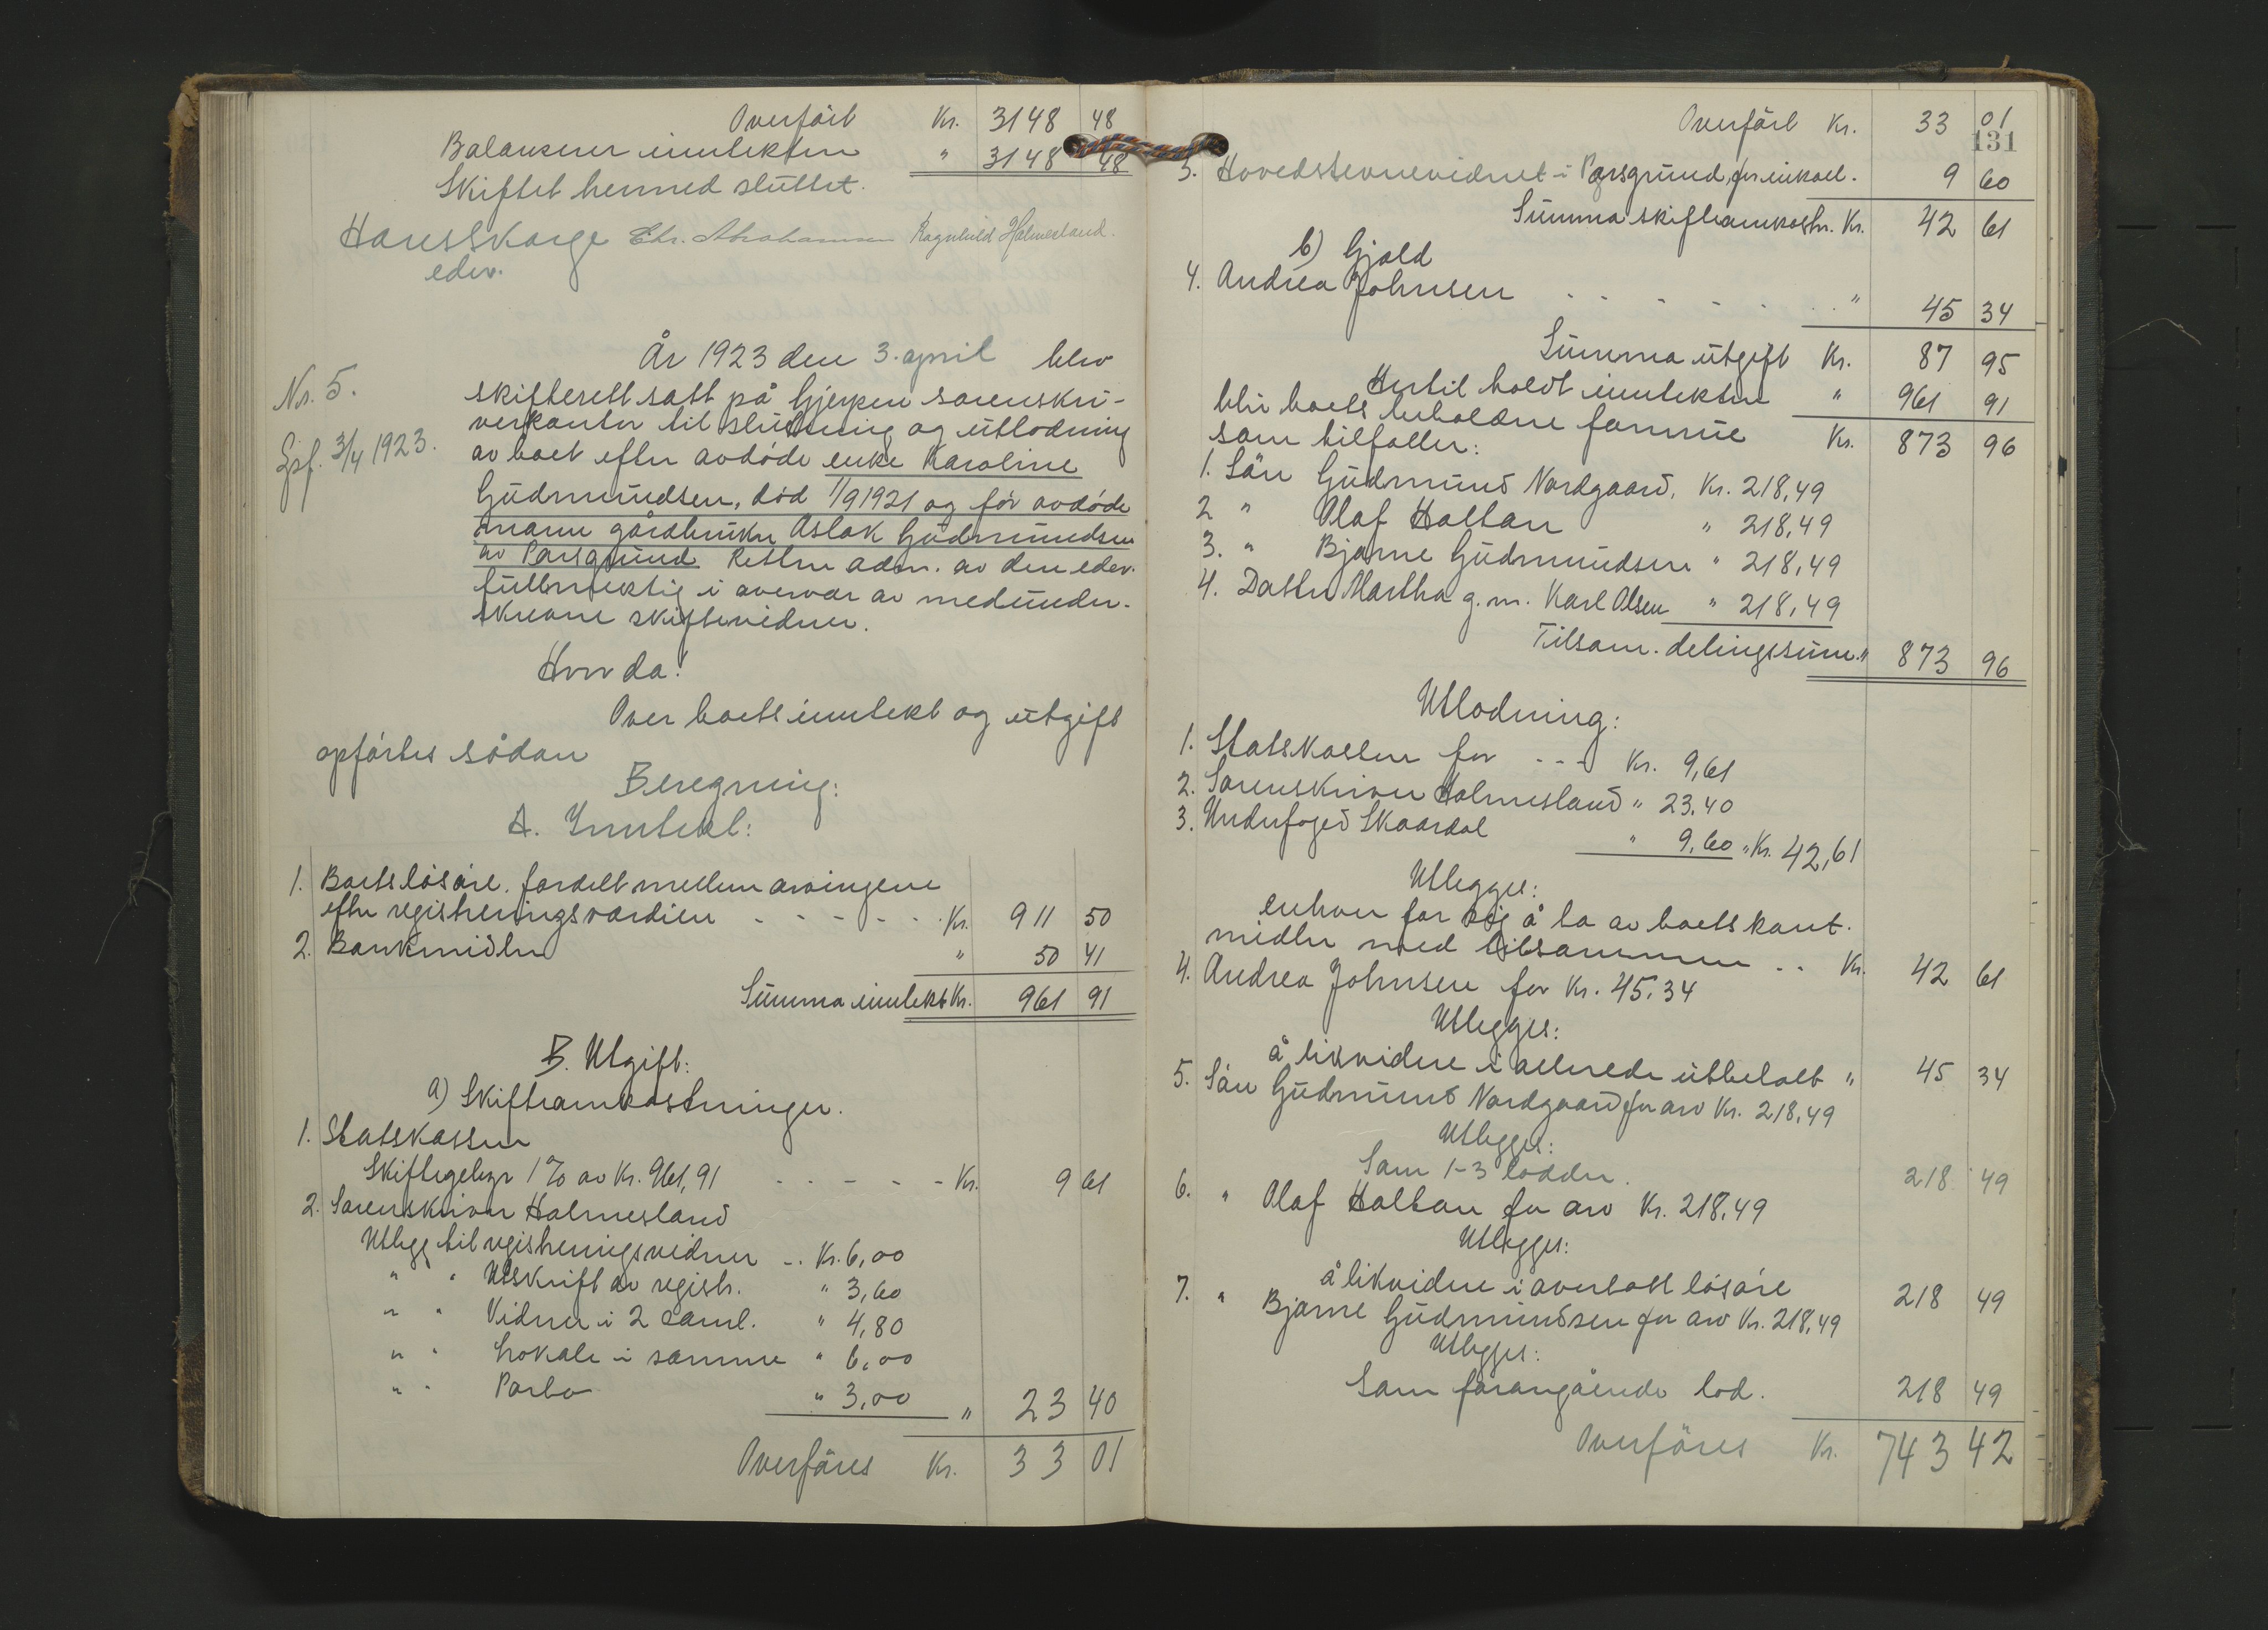 Overført Kr. 3148 48
Balanserer inntekten " 3148 48
Skiftet hermed sluttet.
Hans Skarge Chr. Abrahamsen Ragnhild Holmesland.
edsv.
År 1923 den 3. april blev
Nr. 5.
skifterett satt på Gjerpen sorenskri-
verkontor til slutning og utlodning
Gpf. 3/4 1923.
av boet efter avdøde enke Karoline
Gudmundsen, død 1/9 1921 og før avdøde
mann gårdbruker Aslak Gudmundsen
av Porsgrund. Retten adm. av den edsv.
fullmektig i overvær av medunder-
skrevne skiftevidner.
Hvor da:
Over boets inntekt og utgift
opførtes sådan
Beregning:
A. Inntekt:
1. Boets løsøre fordelt mellem arvingene
efter registreringsværdien - - - - - . Kr. 911 50
2. Bankmidler " 50 41
Summa inntekt Kr. 961 91
B. Utgift:
a) Skifteomkostninger.
1. Statskassen
Skiftegebyr 1% av Kr. 961,91 . . - - - - Kr. 9 61
2. Sorenskriver Holmesland
Utlegg til registreringsvidner .. Kr. 6,00
" " Utskrift av registr. " 3,60
" " Vidner i 2 saml. " 4,80
" " Lokale i samme " 6,00
" " Porto " 3,00 " 23 40
Overføres Kr. 33 01
Overført Kr. 33 01
131
3. Hovedstevnevidnet i Porsgrund, for innkall. 9 60
Summa skifteomkostn. Kr. 42 61
b) Gjæld
4. Andrea Johnsen . . - - - . . . " 45 34
Summa utgift Kr. 87 95
Hertil holdt inntekten " 961 91
blir boets beholdne formue Kr. 873 96
som tilfaller:
1. Søn Gudmund Nordgaard, Kr. 218,49
2 " Olaf Holtan " 218,49
3. " Bjarne Gudmundsen " 218,49
4. Datter Martha g.m. Karl Olsen " 218,49
Tilsam. delingssum " 873 96
Utlodning:
1. Statskassen for - - - Kr. 9,61
2. Sorenskriver Holmesland " 23,40
3. Underfoged Skaardal " 9,60 " Kr. 42,61
Utlegges:
enhver for sig å ta av boets kont.
midler med tilsammen .. Kr. 42 61
4. Andrea Johnsen for Kr. 45,34
Utlegges:
å likvidere i allerede utbetalt " 45 34
5. Søn Gudmund Nordgaard for arv Kr. 218,49
Utlegges:
Som 1-3 lodder. 218 49
6. " Olaf Holtan for arv Kr. 218,49
Utlegges:
å likvidere i overtatt løsøre 218 49
7. " Bjarne Gudmundsen for arv Kr. 218,49
Utlegges:
Som forangående lod. 218 49
Overføres Kr. 743 42